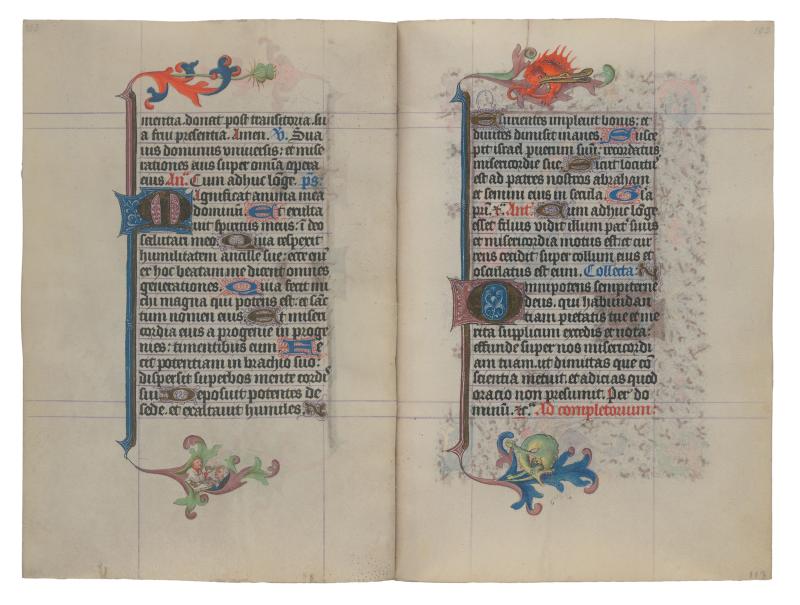 mentia. donet post transitoria. su
a frui presentia. Amen. V. Sua
uis dominus vniuersis: et mise
rationes eius super omnia opera
eius An. Cum adhuc longe. ps.
Magnificat anima mea
dominum. Et exulta
uit spiritus meus: in deo
salutari meo. Quia respexit
humilitatem ancille sue: ecce enim
ex hoc beatam me dicent omnes
generationes. Quia fecit mi
chi magna qui potens est: et sanc
tum nomen eius. Et miseri
cordia eius a progenie in proge
nies: timentibus eum. Fe
cit potentiam in brachio suo:
dispersit superbos mente cordis
sui. Deposuit potentes de
sede. et exaltauit humiles.
Esurientes impleuit bonis: et
diuites dimisit inanes. Susce
pit israel puerum suum: recordatus
misericordie sue. Sicut locutus
est ad patres nostros abraham
et semini eius in secula. Glo
Ant. Cum adhuc longe
esset filius vidit illum pater suus
et misericordia motus est: et cur
rens cecidit super collum eius et
osculatus est eum. Collecta:
Omnipotens sempiterne
deus. qui habundan
tiam pietatis tue et me
rita supplicum excedis et uota:
effunde super nos misericordi
am tuam. ut dimittas que con
scientia metuit: et adicias quod
oracio non presumit. Per do
minum. Ad completorium:
113